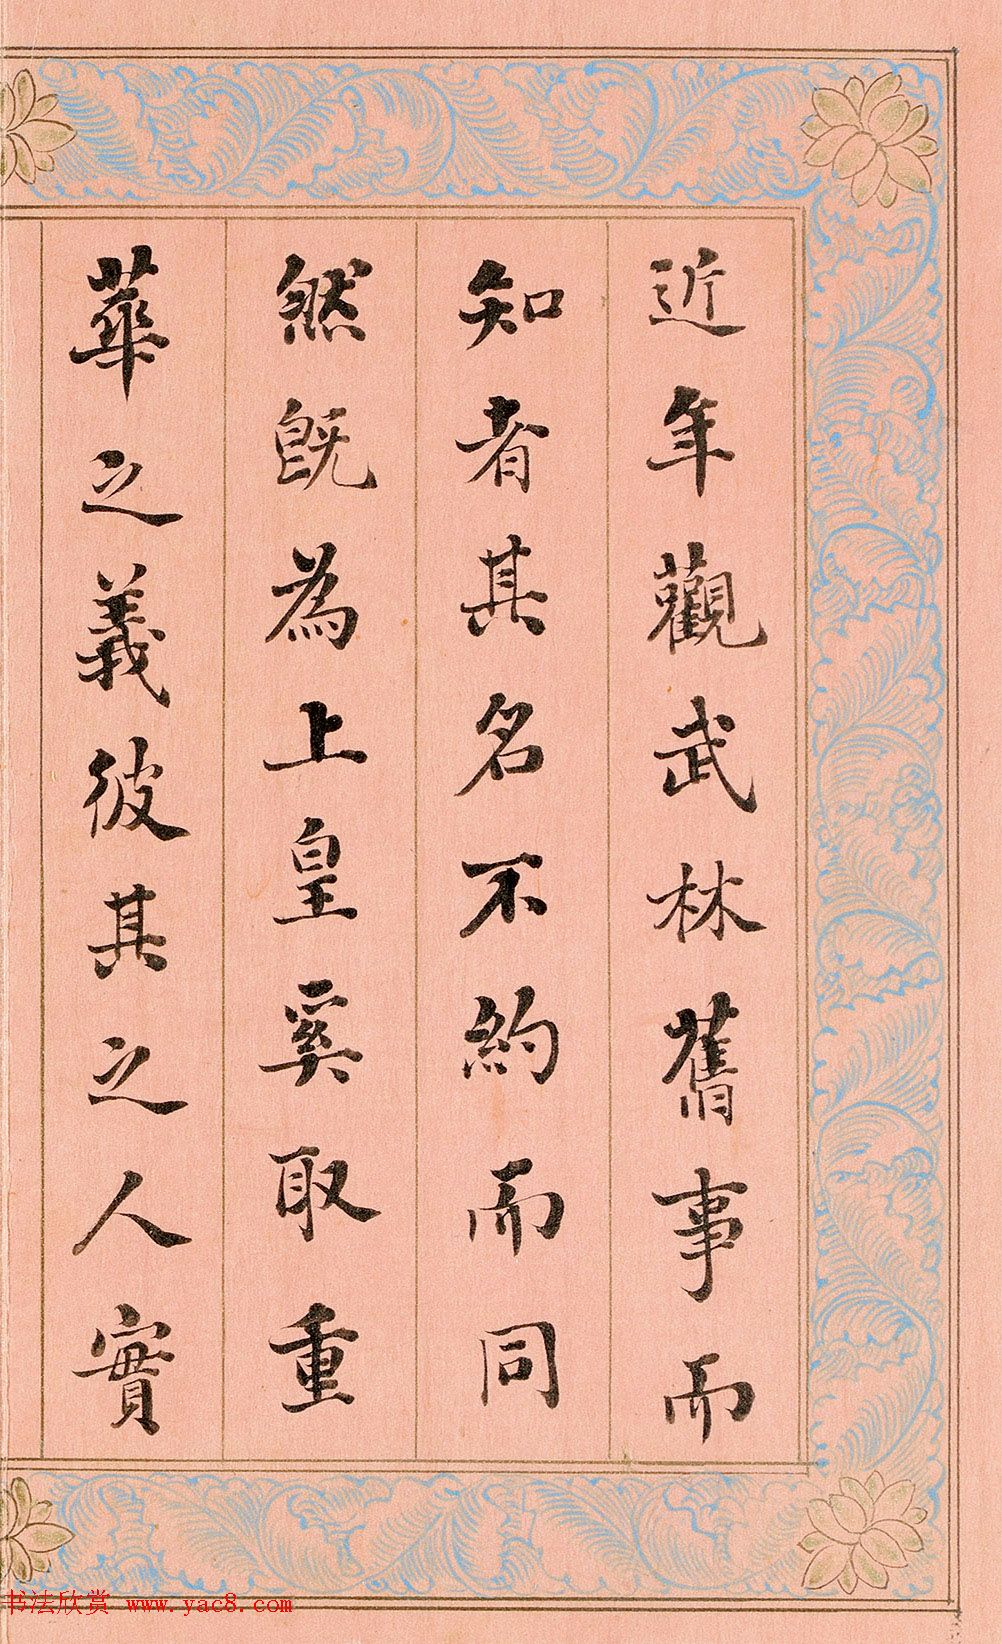 近年觀武林舊事而
知者其名不約而同
然既為上皇奚取重
華之義彼其之人實
书法欣赏 www.yac8.com